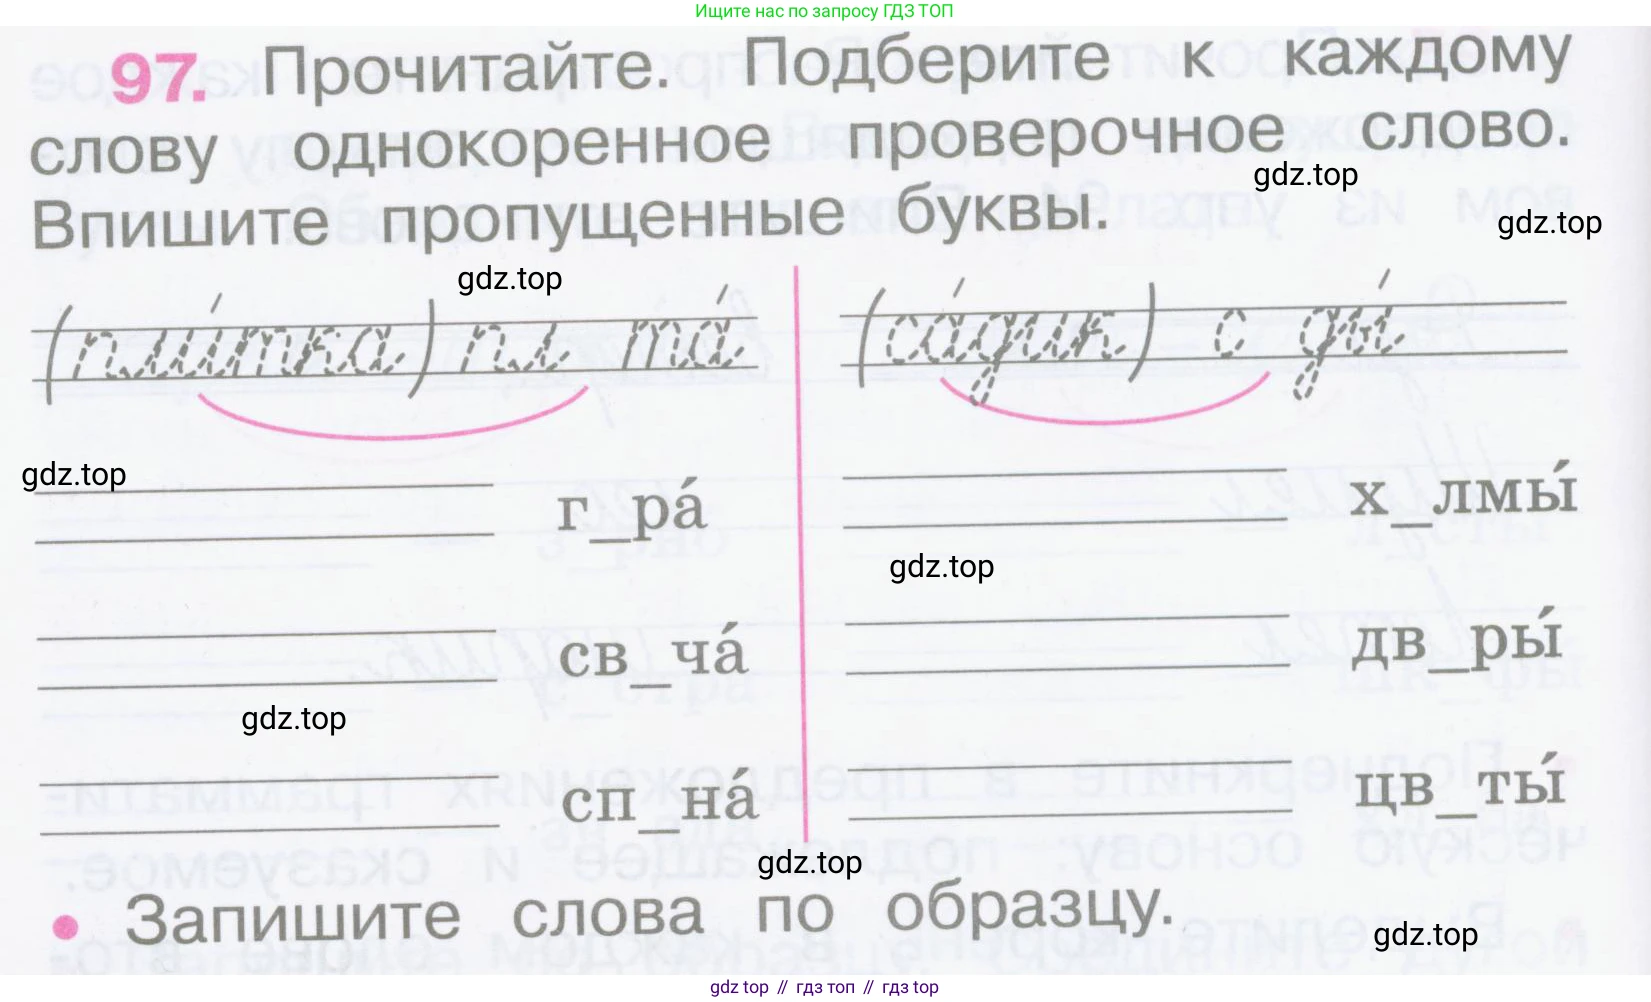 Ищите нас по запросу ГДЗ ТОП
97. Прочитайте. Подберите к каждому
слову однокоренное проверочное слово.
gdz.top
Впишите пропущенные буквы.
gdz.top
gdz.top
(пли́тка) пл та́
(са́дик) с ды́
gdz.top
г_ра́
х_лмы́
gdz.top
св_ча́
дв_ры́
gdz.top
сп_на́
цв_ты́
gdz.top
• Запишите слова по образцу.
gdz.top
gdz top // гдз топ // гдз top